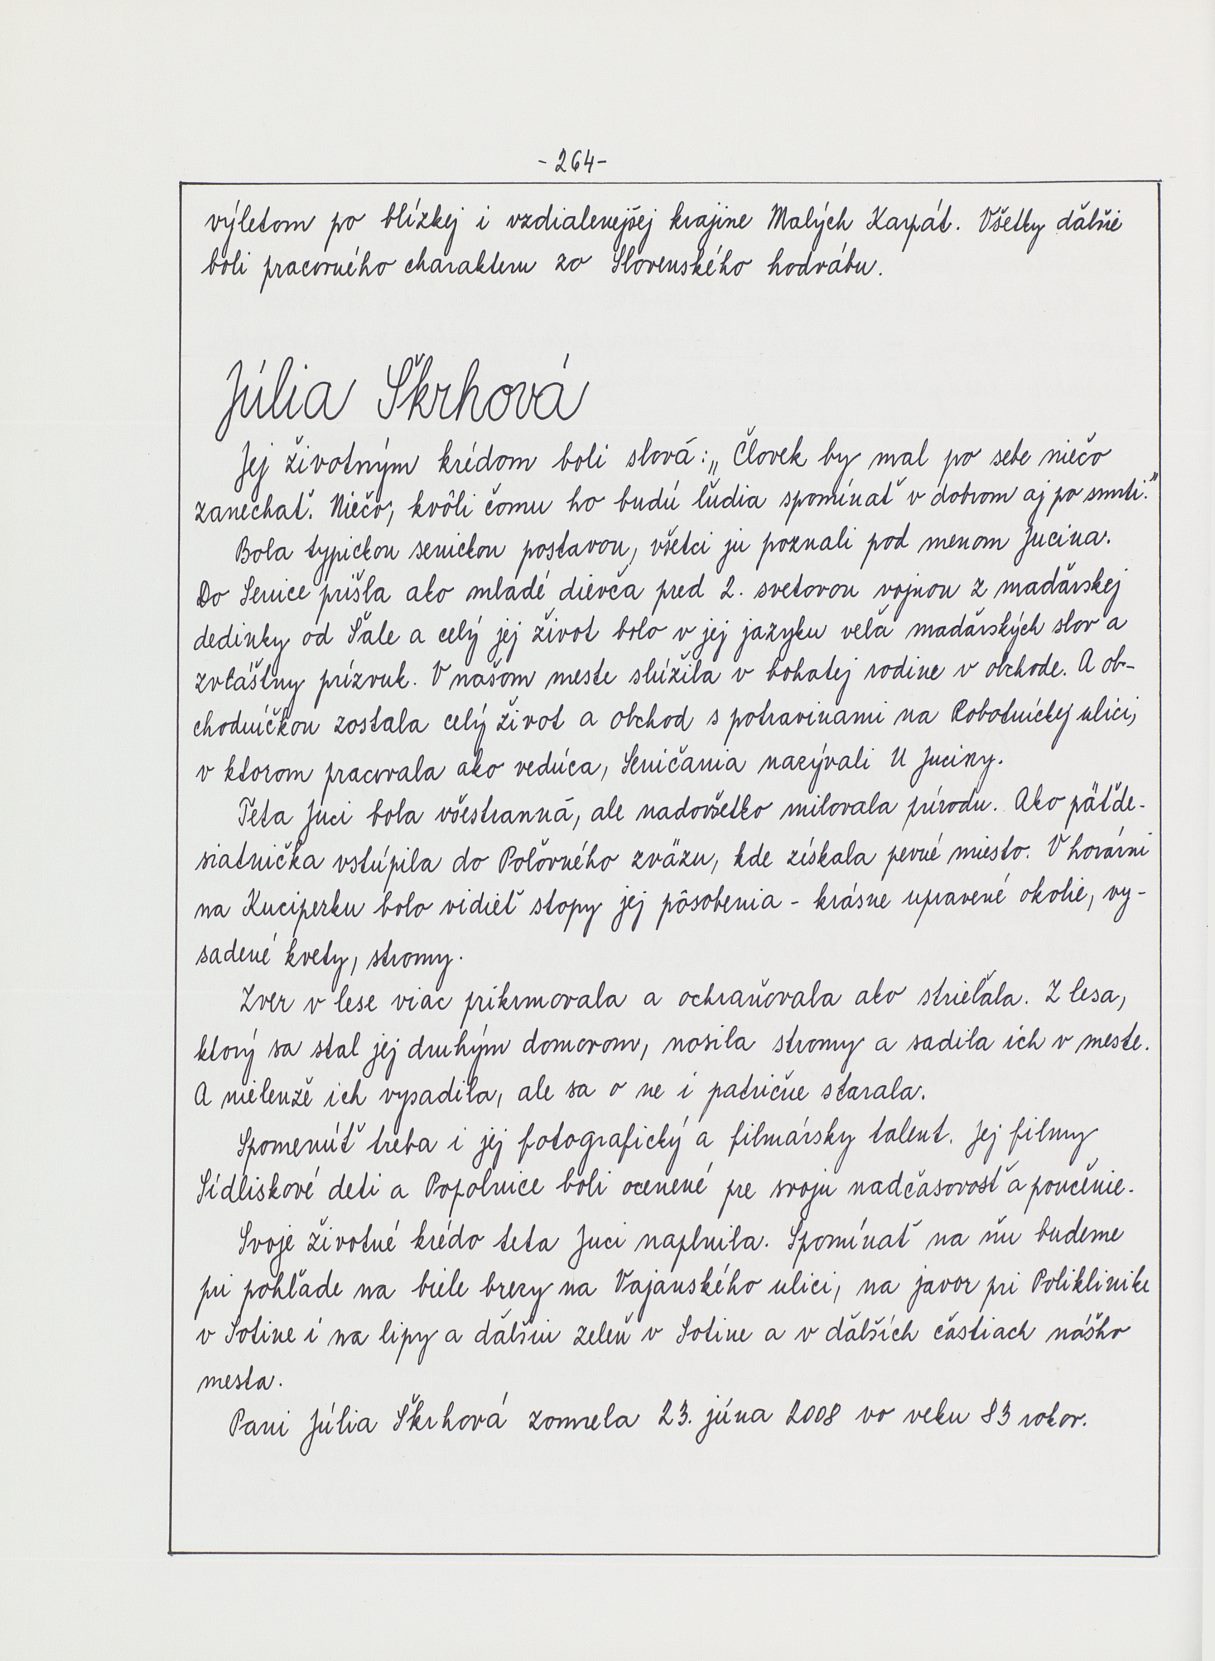 -264-
výletom po blízkej i vzdialenejšej krajine Malých Karpát. Všetky ďalšie
boli pracovného charakteru zo Slovenského hodvábu.
Júlia Škrhová
Jej životným krédom boli slová: „Človek by mal po sebe niečo
zanechať. Niečo, kvôli čomu ho budú ľudia spomínať v dobrom aj po smrti."
Bola typickou senickou postavou, všetci ju poznali pod menom Jucina.
Do Senice prišla ako mladé dievča pred 2. svetovou vojnou z maďarskej
dedinky od Šale a celý jej život bolo v jej jazyku veľa maďarských slov a
zvláštny prízvuk. V našom meste slúžila v bohatej rodine v obchode. A ob-
chodníčkou zostala celý život a obchod s potravinami na Robotníckej ulici,
v ktorom pracovala ako vedúca, Seničania nazývali U Juciny.
Teta Juci bola všestranná, ale nadovšetko milovala prírodu. Ako päťde-
siatnička vstúpila do Poľovného zväzu, kde získala pevné miesto. V horárni
na Kuciperku bolo vidieť stopy jej pôsobenia - krásne upravené okolie, vy-
sadené kvety, stromy.
Zver v lese viac prikrmovala a ochraňovala ako strieľala. Z lesa,
ktorý sa stal jej druhým domovom, nosila stromy a sadila ich v meste.
A nielenže ich vysadila, ale sa o ne i patrične starala.
Spomenúť treba i jej fotografický a filmársky talent. Jej filmy
Sídliskové deti a Popolnice boli ocenené pre svoju nadčasovosť a poučenie.
Svoje životné krédo teta Juci naplnila. Spomínať na ňu budeme
pri pohľade na biele brezy na Vajanského ulici, na javor pri Poliklinike
v Sotine i na lipy a ďalšiu zeleň v Sotine a v ďalších častiach nášho
mesta.
Pani Júlia Škrhová zomrela 23. júna 2008 vo veku 83 rokov.